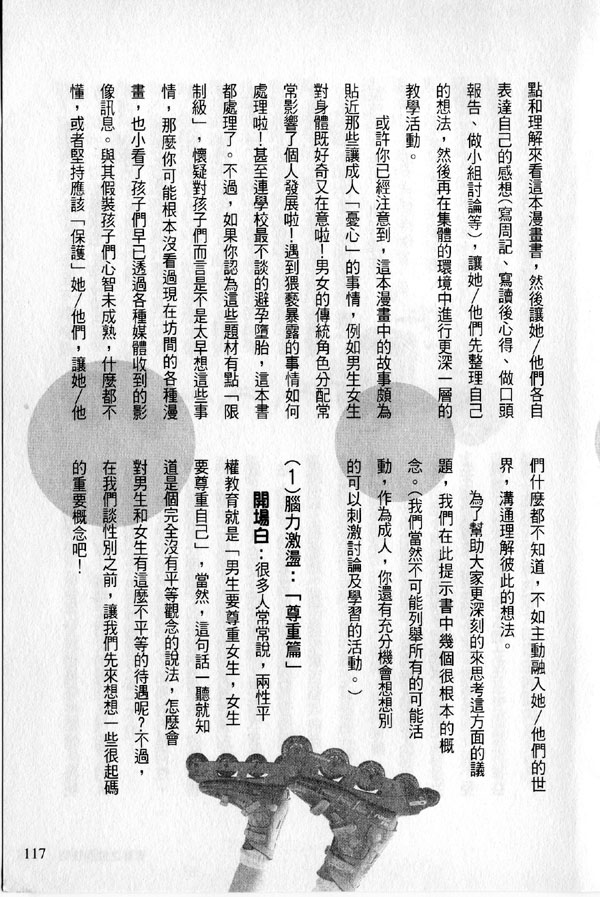 點和理解來看這本漫畫書，然後讓她/他們各自
表達自己的感想(寫周記、寫讀後心得、做口頭
報告、做小組討論等)，讓她/他們先整理自己
的想法，然後再在集體的環境中進行更深一層的
教學活動。
或許你已經注意到，這本漫畫中的故事頗為
貼近那些讓成人「憂心」的事情，例如男生女生
對身體既好奇又在意啦！男女的傳統角色分配常
常影響了個人發展啦！遇到猥褻暴露的事情如何
處理啦！甚至連學校最不談的避孕墮胎，這本書
都處理了。不過，如果你認為這些題材有點「限
制級」，懷疑對孩子們而言是不是太早想這些事
情，那麼你可能根本沒看過現在坊間的各種漫
畫，也小看了孩子們早已透過各種媒體收到的影
像訊息。與其假裝孩子們心智未成熟，什麼都不
懂，或者堅持應該「保護」她/他們，讓她/他
們什麼都不知道，不如主動融入她/他們的世
界，溝通理解彼此的想法。
為了幫助大家更深刻的來思考這方面的議
題，我們在此提示書中幾個很根本的概
念。(我們當然不可能列舉所有的可能活
動，作為成人，你還有充分機會想想別
的可以刺激討論及學習的活動。)
(1)腦力激盪：「尊重篇」
開場白：很多人常常說，兩性平
權教育就是「男生要尊重女生，女生
要尊重自己」，當然，這句話一聽就知
道是個完全沒有平等觀念的說法，怎麼會
對男生和女生有這麼不平等的待遇呢？不過，
在我們談性別之前，讓我們先來想想一些很起碼
的重要概念吧！
117